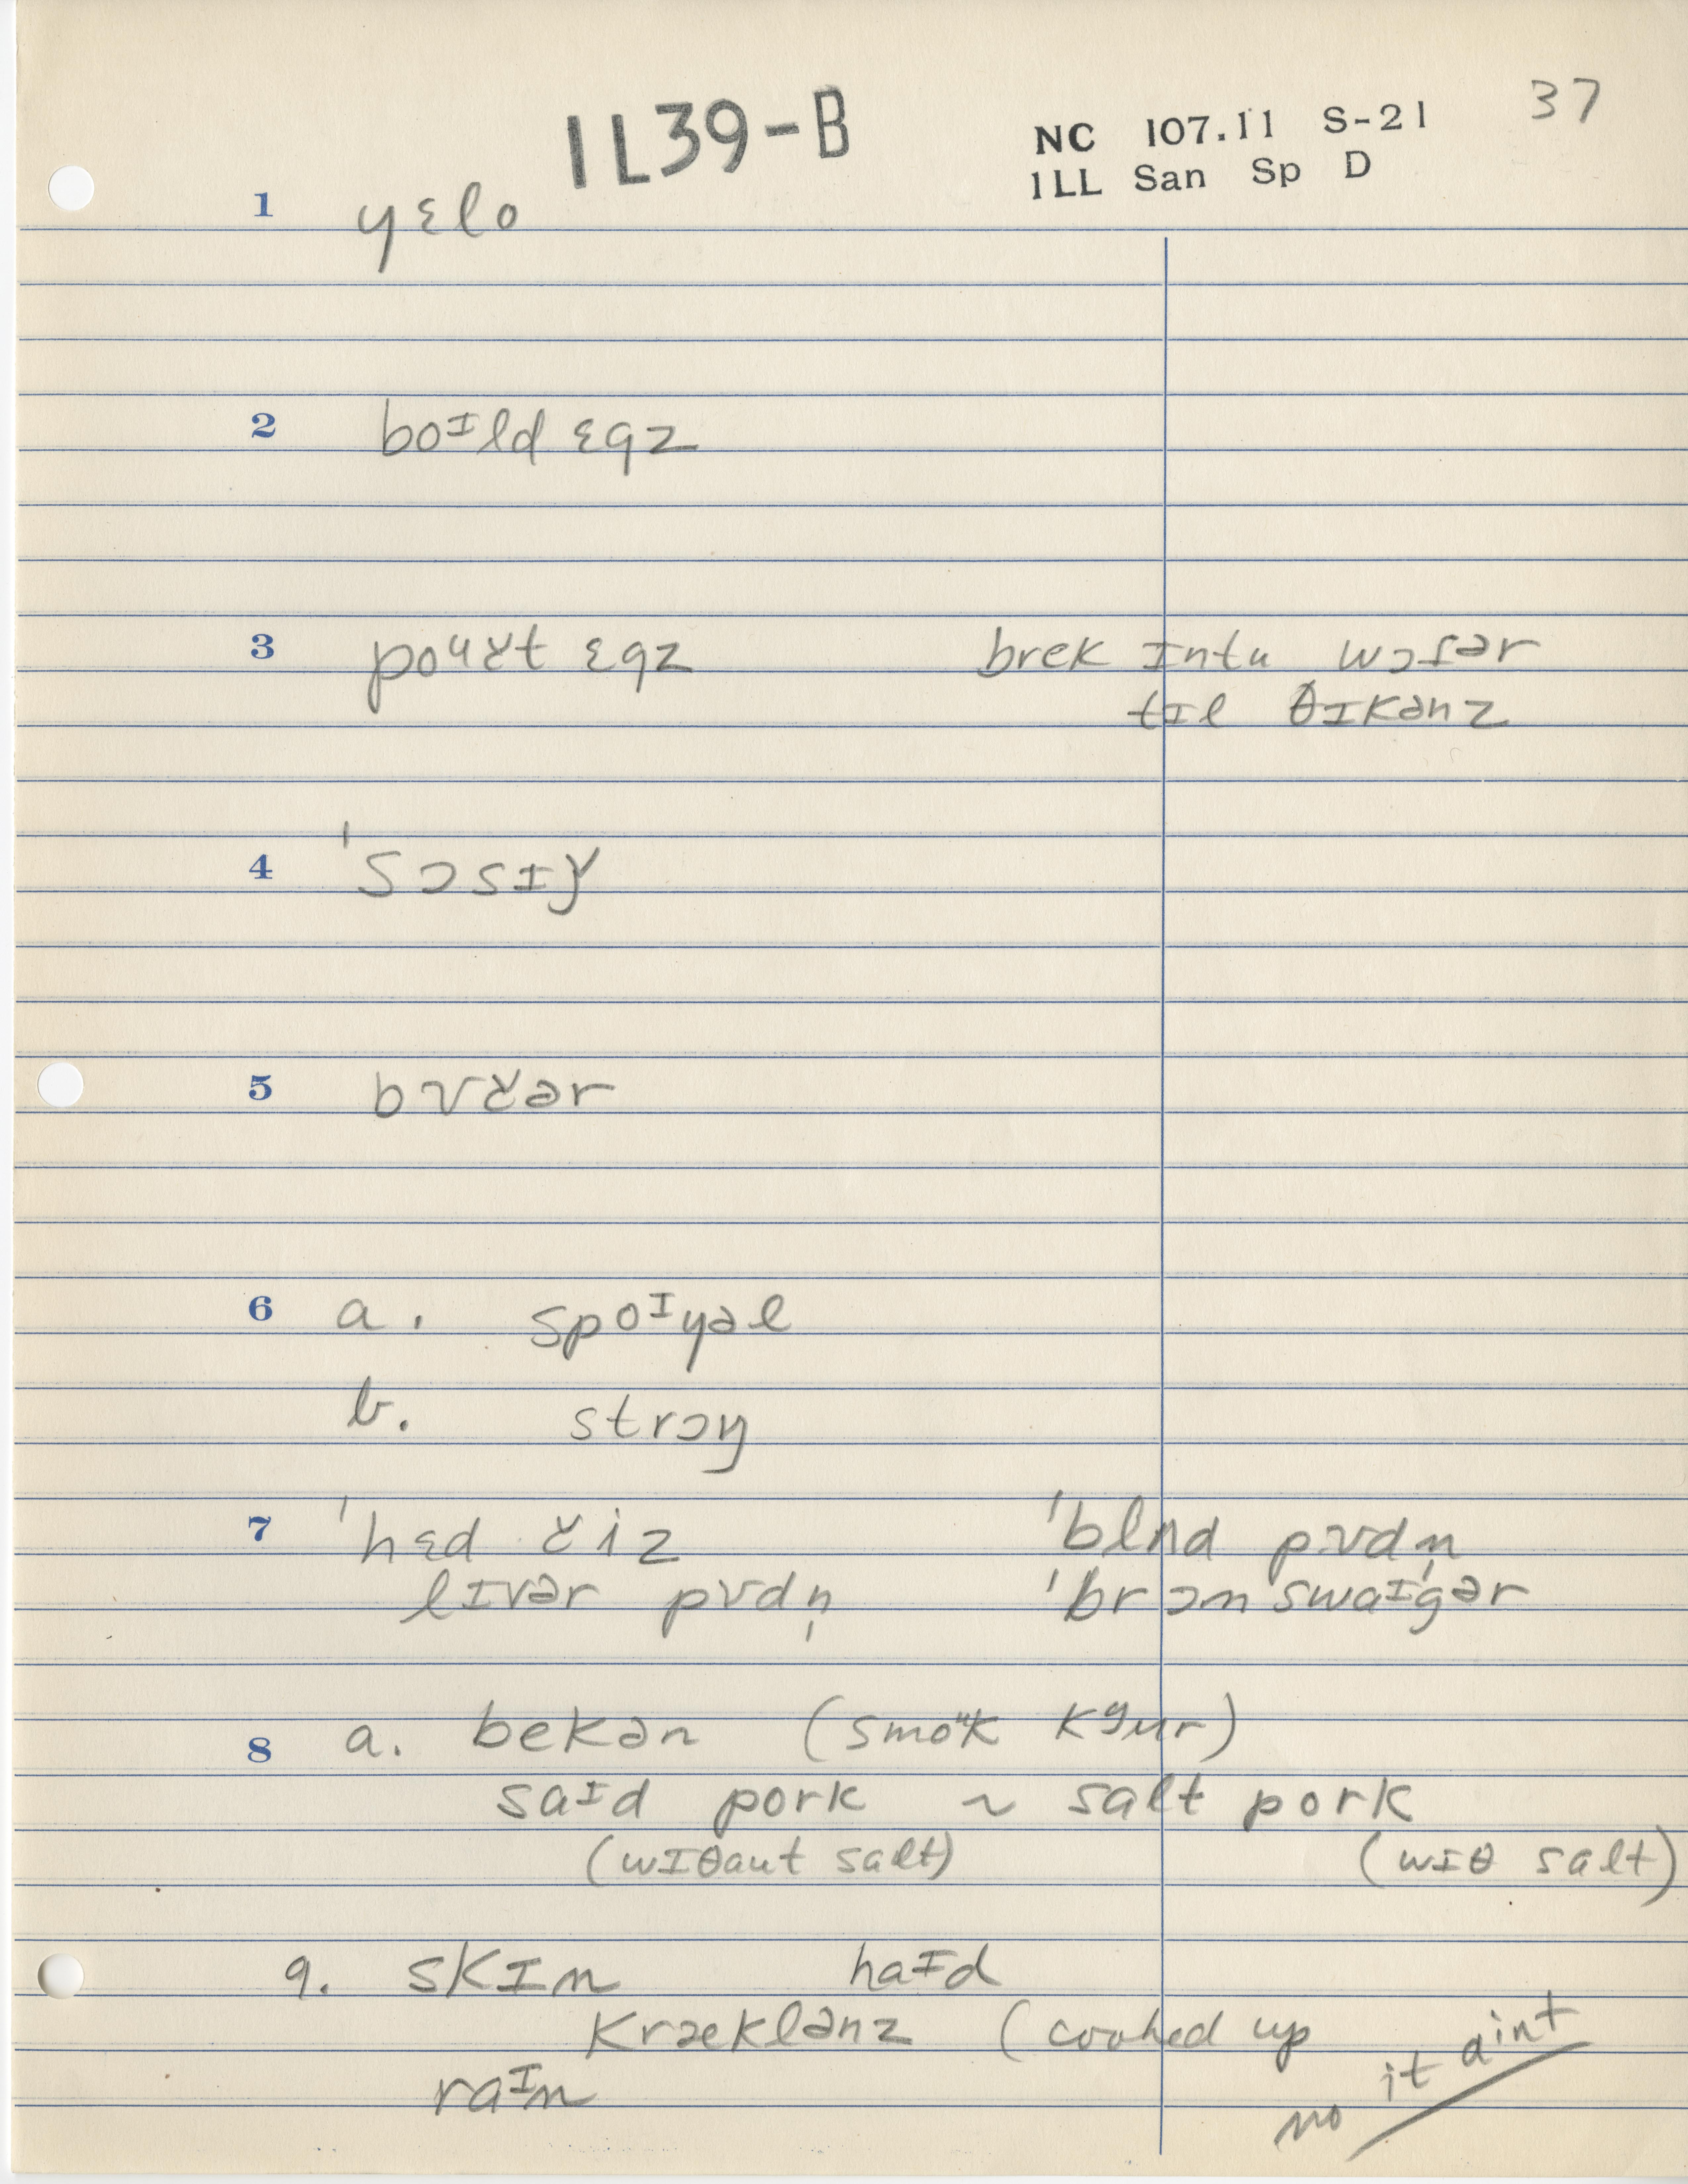 1L39-B
NC 107.11 S-21 37
1LL San Sp D
1 yɛlo
2 boᴵld ɛgz
3 poɥɤt ɛgz brek ɪntu wɔtər
tɪl θɪkənz
4 ˈsɔsɪɣ
5 bʊɤər
6 a. spoᴵyəl
b. strɔŋ
7 ˈhɛd ɤiz ˈblʌd pʊdn̩
lɪvər pʊdn̩ ˈbrɔnswaᴵgər
8 a. bekən (smoᵘk kʸur)
saᴵd pork ~ salt pork
(wɪθaut salt) (wɪθ salt)
9. skɪn haᴵd
kræklənz (cooked up
raᴵn no it aint